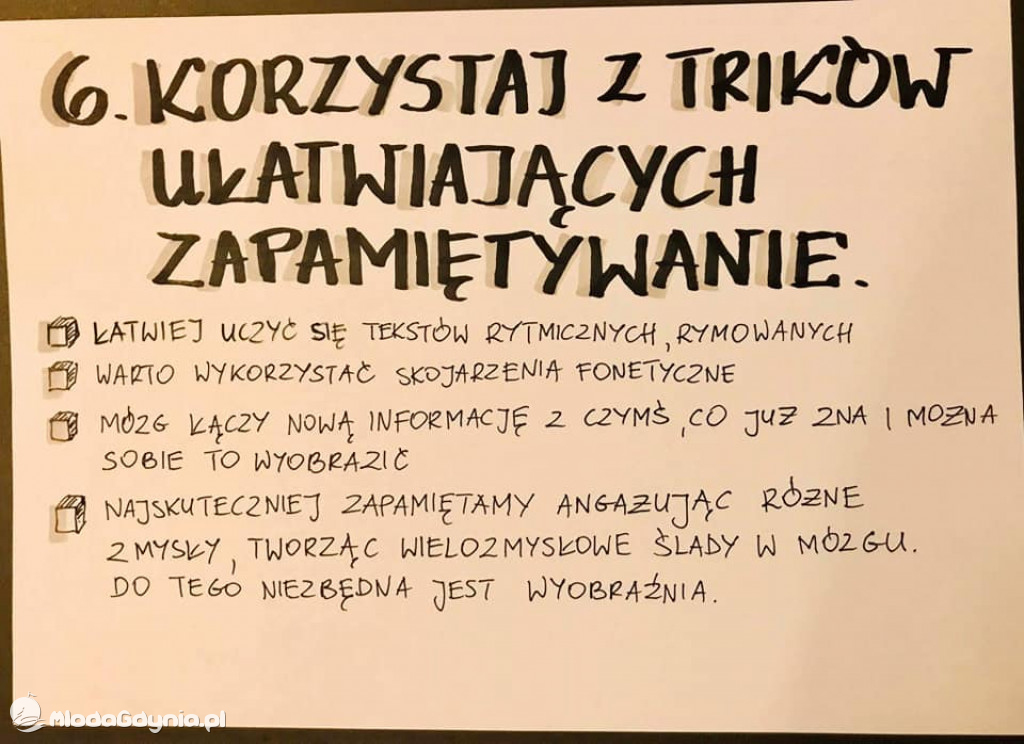 6. KORZYSTAJ Z TRIKÓW
UŁATWIAJĄCYCH
ZAPAMIĘTYWANIE.
ŁATWIEJ UCZYĆ SIĘ TEKSTÓW RYTMICZNYCH, RYMOWANYCH
WARTO WYKORZYSTAĆ SKOJARZENIA FONETYCZNE
MÓZG ŁĄCZY NOWĄ INFORMACJĘ Z CZYMŚ, CO JUŻ ZNA I MOŻNA
SOBIE TO WYOBRAZIĆ
NAJSKUTECZNIEJ ZAPAMIĘTAMY ANGAŻUJĄC RÓŻNE
ZMYSŁY, TWORZĄC WIELOZMYSŁOWE ŚLADY W MÓZGU.
DO TEGO NIEZBĘDNA JEST WYOBRAŹNIA.
MlodaGdynia.pl